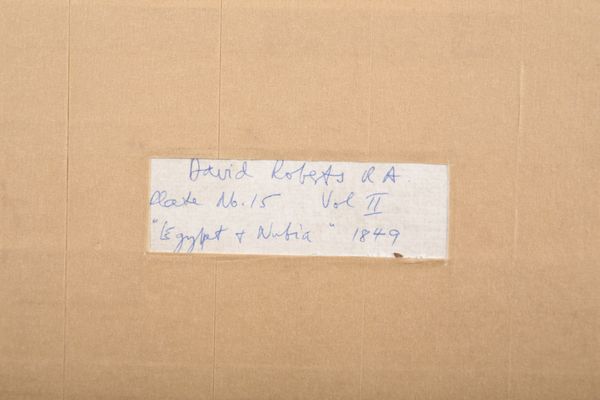 David Roberts R A.
Plate No. 15 Vol II
"Egypt + Nubia" 1849